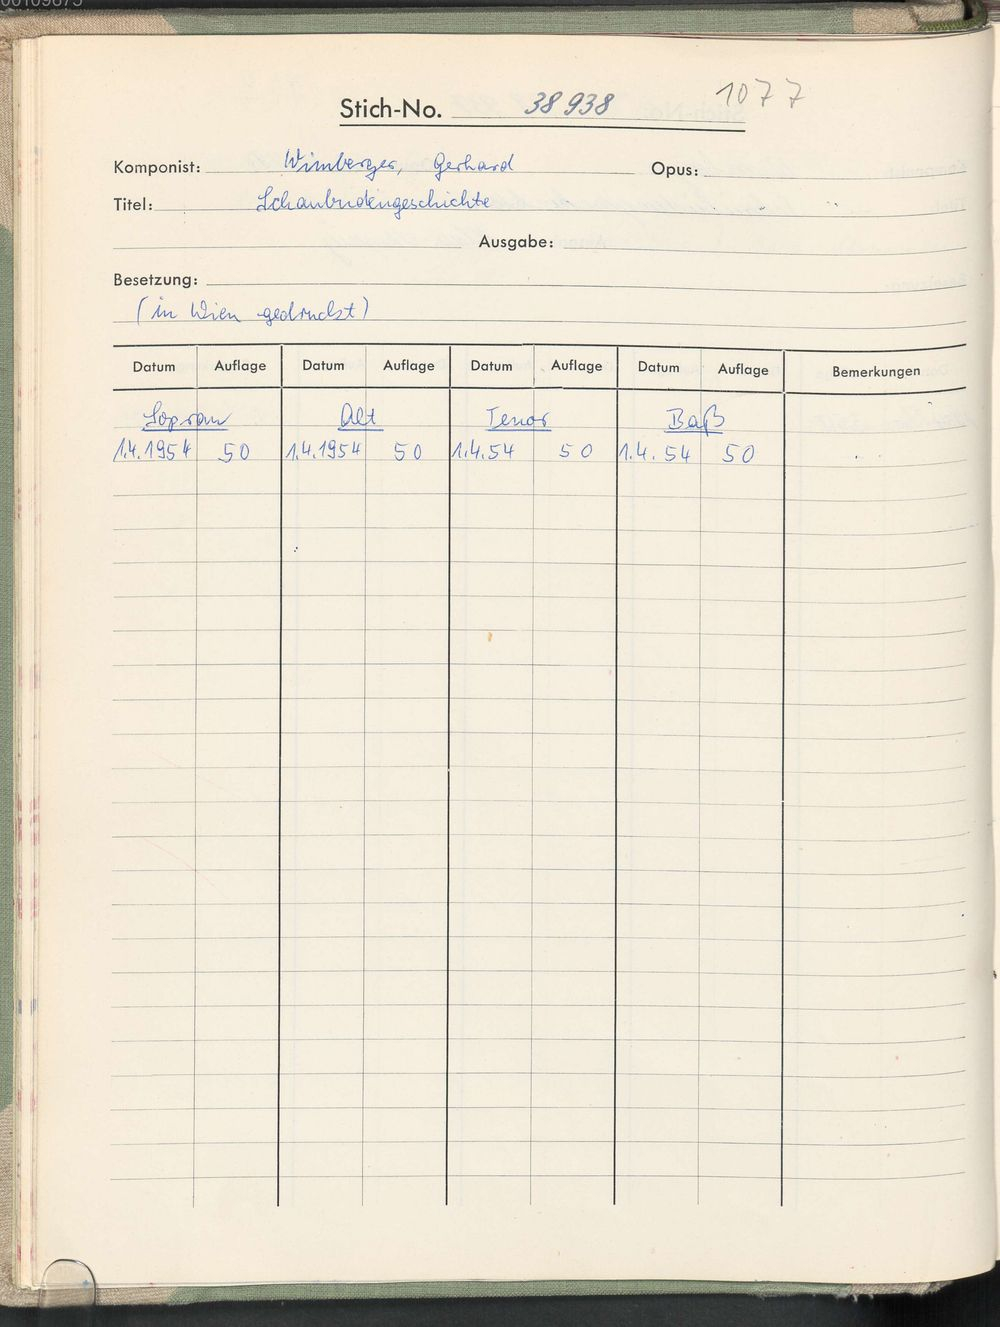 1077
Stich-No. 38 938
Komponist: Wimberger, Gerhard Opus:
Titel: Schaubudengeschichte
Ausgabe:
Besetzung:
(in Wien gedruckt)
Datum Auflage Datum Auflage Datum Auflage Datum Auflage Bemerkungen
Sopran Alt Tenor Baß
1.4.1954 50 1.4.1954 50 1.4.54 50 1.4.54 50